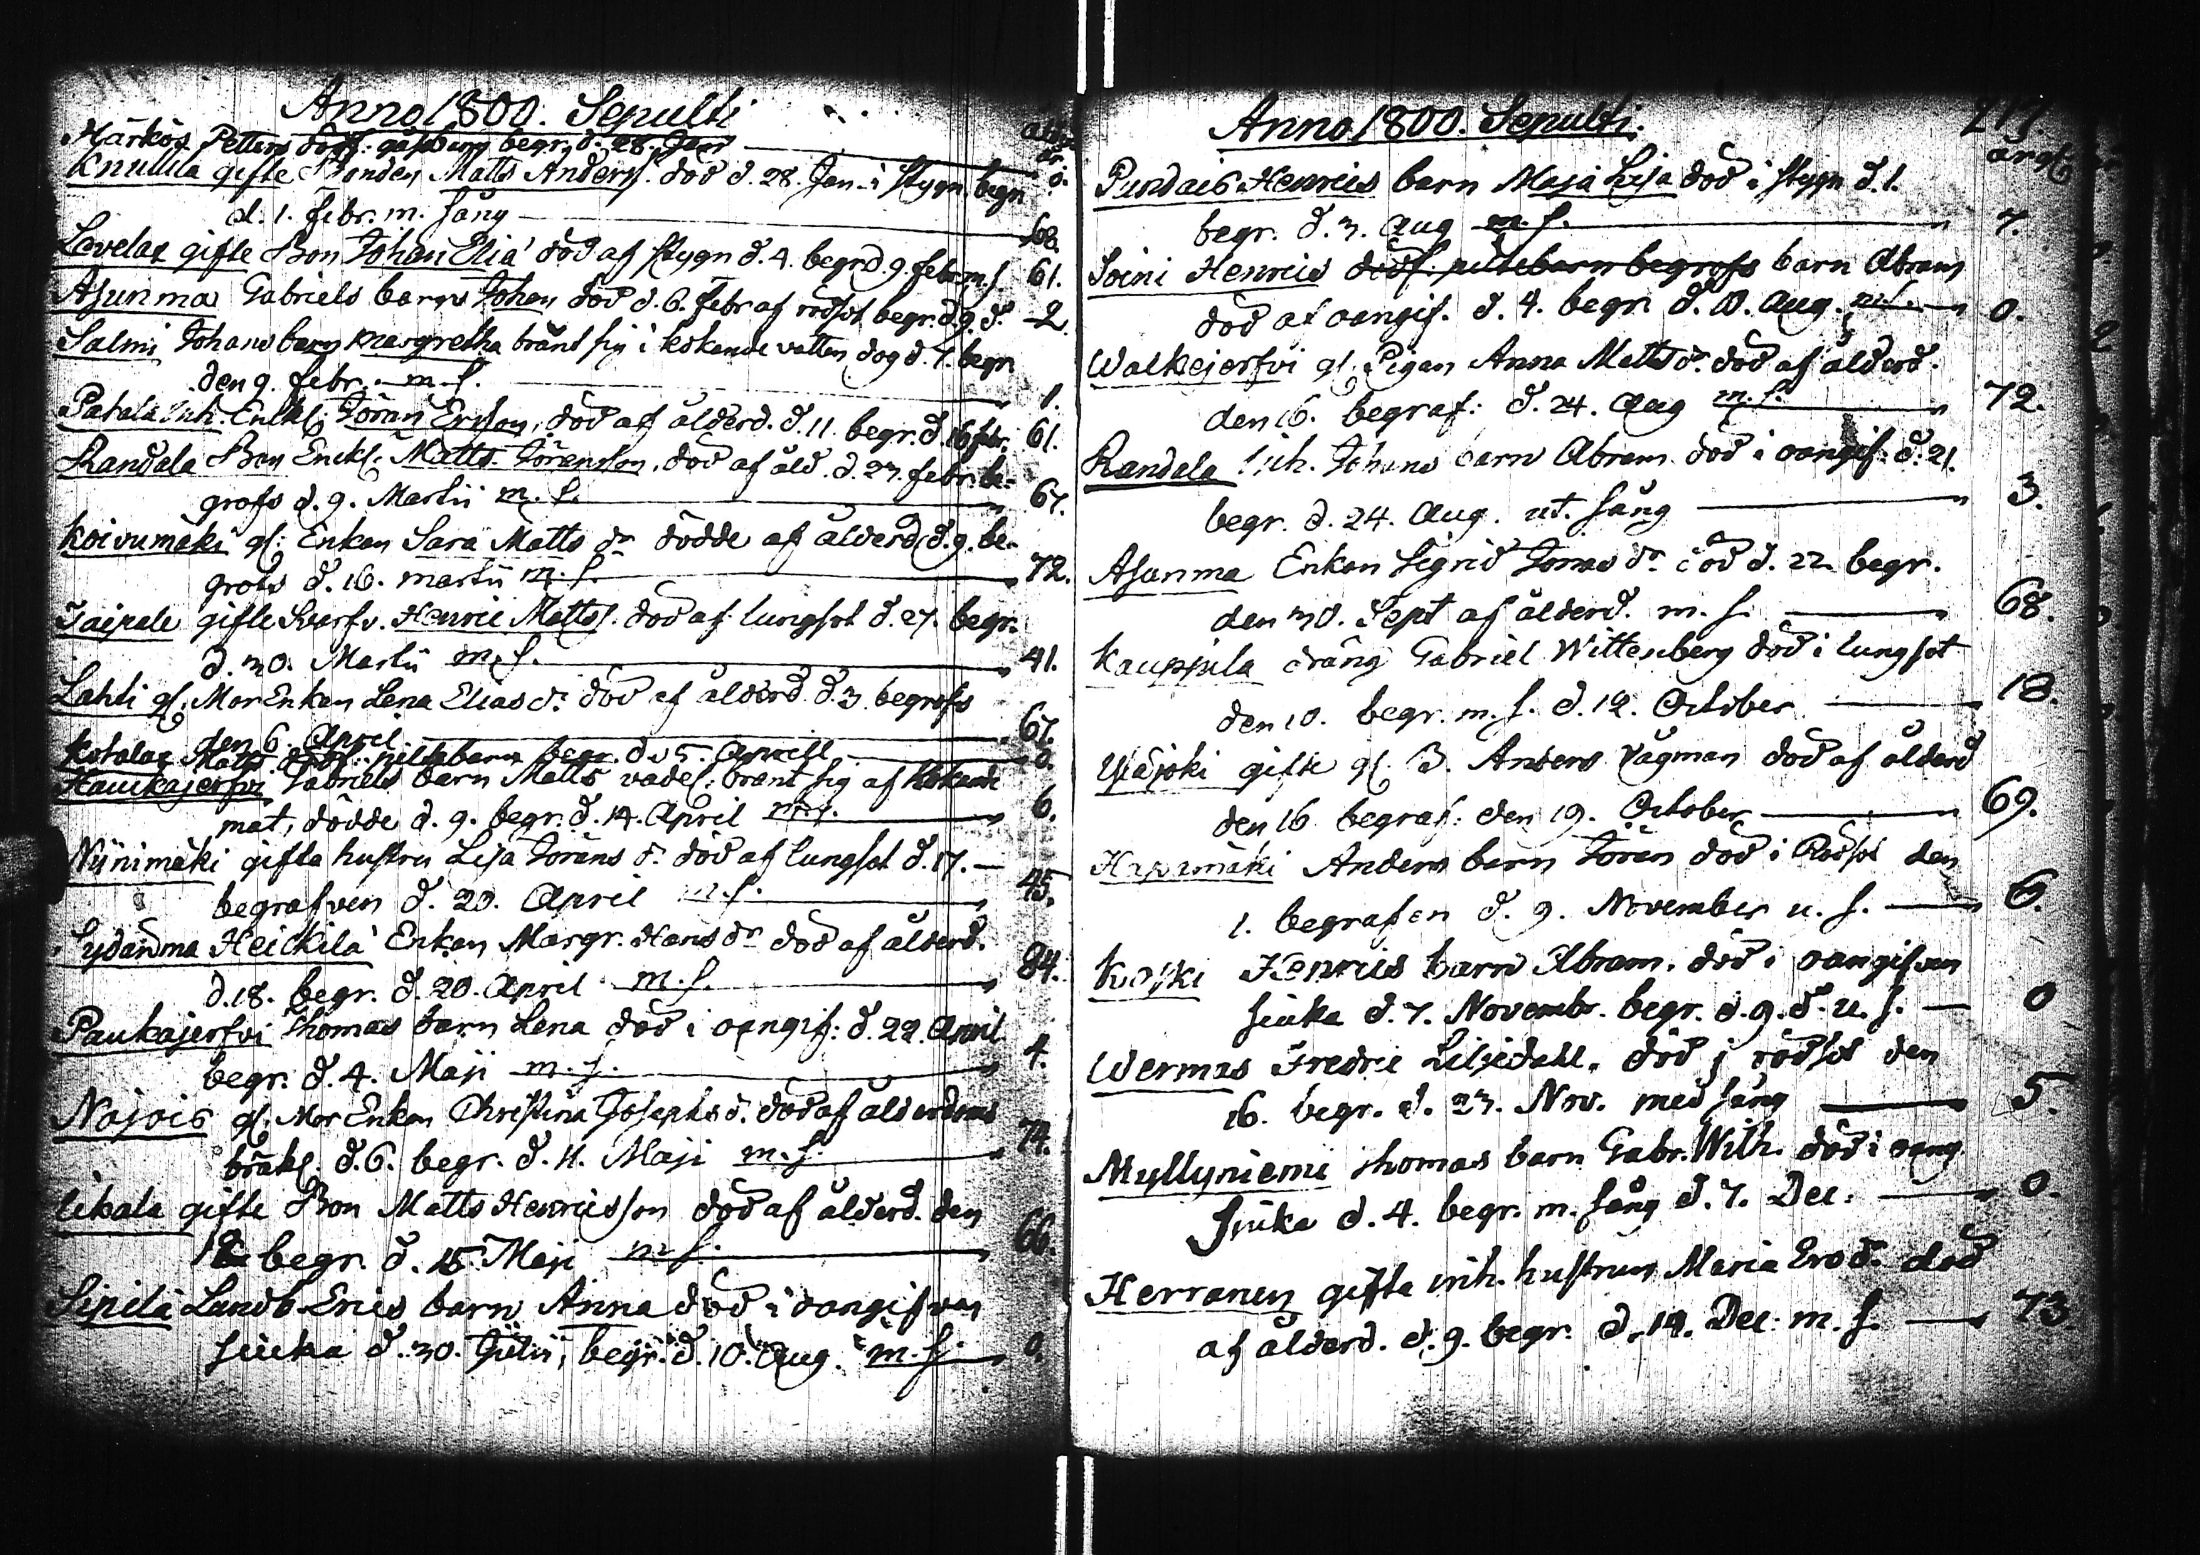 Anno 1800. Sepulti
ålder
år.
Härkös Petters dödf: gåssbarn begr. d. 28. Janr — 0.
Knuuila gifte Bonden Matts Anderss. död d. 28. Jan. i stygn, begr.
d. 1. febr. m. sång — 60.
Lavelax gifte Bon Johan Elia död af stygn d. 4. begr d. 9. febr. m. s. 61.
Asunma Gabriels barn Johan död d. 6. febr af rödsot begr. d. 9. d. 2.
Salmi Johans barn Margretha bränt sig i kokande vatten dog d. 7. begr
den 9. febr. m. s. — 1.
Pahala Inh. Enkl. Jöran Ersson, död af ålderd. d. 11. begr. d. 16 febr. 61.
Randala Bon Enkl. Matts Jöransson, död af åld. d. 27. febr. be-
grofs d. 9. Martii m. s. — 67.
Koivumäki gl: Enkan Sara Matts dr dödde af ålderd d. 9. be-
grofs d. 16. martii m. s. — 72.
Taipale gifte Svarfv. Henric Matts. död af lungsot d. 27. begr.
d. 30. Martii m. s. — 41.
Lahti gl. Mor Enkan Lena Elias dr död af ålderd d. 3. begrofs
den 6. April — 67.
Kotalax Matts dödf: pilttebarn begr. d. 5. Aprill — 0.
Haukajerfvi Gabriels barn Matts vådel. bränt sig af kokande
mat, dödde d. 9. begr. d. 14. April m. s. — 6.
Niinimäki gifta hustru Lisa Jörans dr död af lungsot d. 17. —
begrafven d. 20. April m. s. — 45.
Sydänma Heickilä Enkan Margr. Hans dr död af ålderd.
d. 18. begr. d. 20. April m. s. — 84.
Paukajerfvi Thomas barn Lena död i oangif: d. 22. April
begr. d. 4. Maji m. s. — 4.
Nojois gl. Mor Enkan Christina Josephs d. död af ålderdoms
bråkl. d. 6. begr. d. 11. Maji m. s. — 74.
Ukala gifte Bon Matts Henricsson död af ålderd. den
12 begr. d. 15. Maji m. s. — 66.
Sipilä Landb Erics barn Anna död i oangifven
siuka d. 30. Julii, begr. d. 10. Aug. m. s. — 0.
Anno 1800. Sepulti.
217.
år gl.
Pundais Henrics barn Maja Lisa död i stygn d. 1.
begr. d. 3. Aug m. s. — 7.
Soini Henrics dödf. piltebarn begrofs barn Abram
död af oangif. d. 4. begr. d. 10. Aug. m. s. — 0.
Walkejerfvi gl. Pigan Anna Matts dr. död af ålderd.
den 16. begraf: d. 24. Aug m. s. — 72.
Randala Inh. Johans barn Abram död i oangif: d. 21.
begr. d. 24. Aug. ut. sång — 3.
Asunma Enkan Sigrid Jonas dr död d. 22. begr.
den 30. Sept af ålderd. m. s. — 68.
Kauppila dräng Gabriel Wittenberg död i lungsot
den 10. begr. m. s. d. 12. October — 18.
Yläjoki gifte gl. B. Anders Vägman död af ålderd
den 16 begraf: den 19. October — 69.
Hapamäki Anders barn Jöran död i Rödsot den
1. begrafen d. 9. November u. s. — 6.
Koski Henrics barn Abram. död i oangifven
siuka d. 7. Novembr. begr. d. 9. d. u. s. — 0
Wermas Fredric Liljedahl. död j rödsot den
16. begr. d. 23. Nov. med sång — 5.
Myllyniemi Thomas barn Gabr. Wilh. död i oang
siuka d. 4. begr. m. sång d. 7. Dec: — 0.
Herranen gifta inh. hustrun Maria Ers d. död
af ålderd. d. 9. begr. d. 14. Dec: m. s. — 73